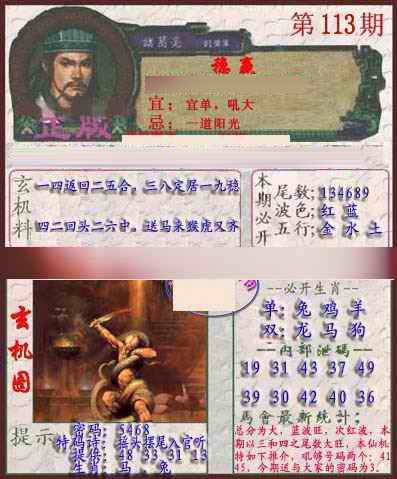 第113期
諸葛亮
穩赢
宜；宜单，吼大
正版
忌；一道阳光
玄机料
一四返回二五合。三八定居一九稳
四二回头二六中。送马来猴虎又齐
本期必开
尾数;134689
波色;红 蓝
五行;金 水 土
玄机图
--必开生肖--
单: 兔 鸡 羊
双: 龙 马 狗
--内部泄码--
19 31 43 37 49
39 30 42 40 36
馬會最新統計;
总分为大，蓝波旺，次红波，本
期以三和四之尾数大旺，本仙机
特如下推介，吼够号码两个: 41
45，今期送与大家的密码为3.
提示
密码: 5468
特码诗: 摇头摆尾入官听
提号: 48 33 31 13
生肖: 马 、 兔